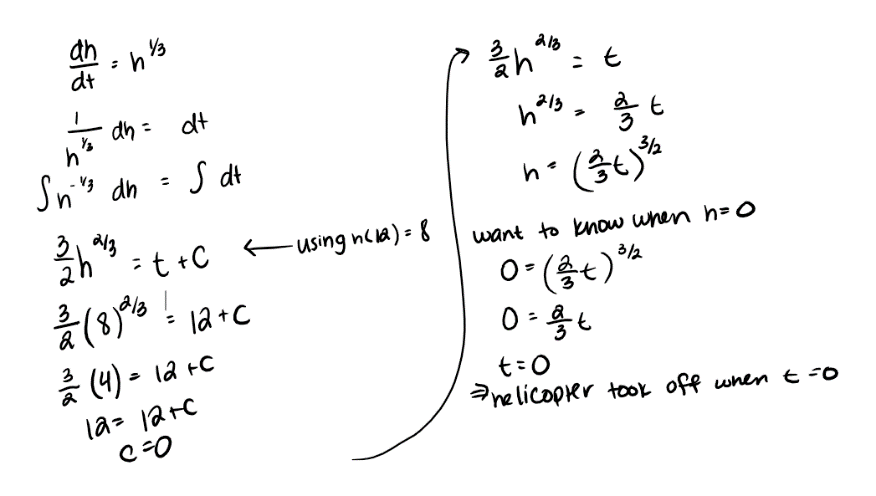 dh/dt = h^1/3
1/h^1/3 dh = dt
∫h^-1/3 dh = ∫ dt
3/2 h^2/3 = t + C ← using h(12) = 8
3/2 (8)^2/3 = 12 + C
3/2 (4) = 12 + C
12 = 12 + C
C = 0
3/2 h^2/3 = t
h^2/3 = 2/3 t
h = (2/3 t)^3/2
want to know when h = 0
0 = (2/3 t)^3/2
0 = 2/3 t
t = 0
⇒ helicopter took off when t = 0